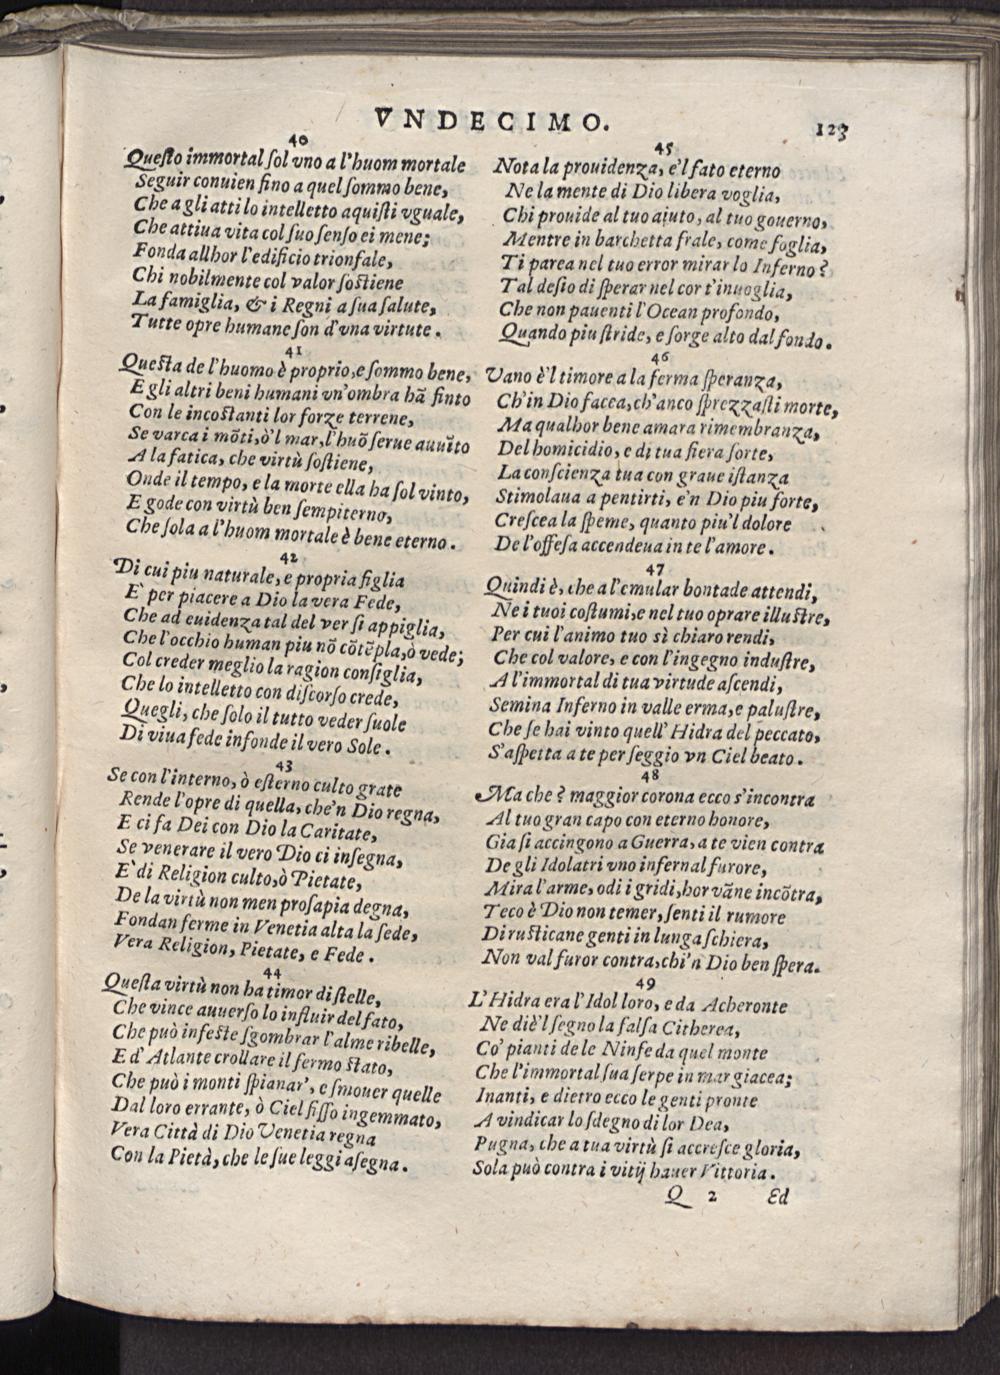 VNDECIMO.
123
40
Queſto immortal ſol vno a l'huom mortale
Seguir conuien ſino a quel ſommo bene,
Che a gli atti lo intelletto aquiſti vguale,
Che attiua vita col ſuo ſenſo ei mene;
Fonda allhor l'edificio trionfale,
Chi nobilmente col valor ſoſtiene
La famiglia, & i Regni a ſua ſalute,
Tutte opre humane ſon d'vna virtute.
41
Queſta de l'huomo è proprio, e ſommo bene,
E gli altri beni humani vn'ombra hã finto
Con le incoſtanti lor forze terrene,
Se varca i mõti, ò'l mar, l'huõ ſerue auuĩto
A la fatica, che virtù ſoſtiene,
Onde il tempo, e la morte ella ha ſol vinto,
E gode con virtù ben ſempiterno,
Che ſola a l'huom mortale è bene eterno.
42
Di cui piu naturale, e propria figlia
E' per piacere a Dio la vera Fede,
Che ad euidenza tal del ver ſi appiglia,
Che l'occhio human piu nõ cõtẽpla, ò vede;
Col creder meglio la ragion conſiglia,
Che lo intelletto con diſcorſo crede,
Quegli, che ſolo il tutto veder ſuole
Di viua fede infonde il vero Sole.
43
Se con l'interno, ò eſterno culto grate
Rende l'opre di quella, che'n Dio regna,
E ci fa Dei con Dio la Caritate,
Se venerare il vero Dio ci inſegna,
E' di Religion culto, ò Pietate,
De la virtù non men proſapia degna,
Fondan ferme in Venetia alta la ſede,
Vera Religion, Pietate, e Fede.
44
Queſta virtù non ha timor di ſtelle,
Che vince auuerſo lo influir del fato,
Che può infeſte ſgombrar l'alme ribelle,
E d'Atlante crollare il fermo ſtato,
Che può i monti ſpianar', e ſmouer quelle
Dal loro errante, ò Ciel fiſſo ingemmato,
Vera Città di Dio Venetia regna
Con la Pietà, che le ſue leggi aſegna.
45
Nota la prouidenza, e'l fato eterno
Ne la mente di Dio libera voglia,
Chi prouide al tuo aiuto, al tuo gouerno,
Mentre in barchetta frale, come foglia,
Ti parea nel tuo error mirar lo Inferno?
Tal deſio di ſperar nel cor t'inuoglia,
Che non pauenti l'Ocean profondo,
Quando piu ſtride, e ſorge alto dal fondo.
46
Vano è'l timore a la ferma ſperanza,
Ch'in Dio facea, ch'anco ſprezzaſti morte,
Ma qualhor bene amara rimembranza,
Del homicidio, e di tua fiera ſorte,
La conſcienza tua con graue iſtanza
Stimolaua a pentirti, e'n Dio piu forte,
Creſcea la ſpeme, quanto piu'l dolore
De l'offeſa accendeua in te l'amore.
47
Quindi è, che a l'emular bontade attendi,
Ne i tuoi coſtumi, e nel tuo oprare illuſtre,
Per cui l'animo tuo sì chiaro rendi,
Che col valore, e con l'ingegno induſtre,
A l'immortal di tua virtude aſcendi,
Semina Inferno in valle erma, e paluſtre,
Che ſe hai vinto quell'Hidra del peccato,
S'aſpetta a te per ſeggio vn Ciel beato.
48
Ma che? maggior corona ecco s'incontra
Al tuo gran capo con eterno honore,
Gia ſi accingono a Guerra, a te vien contra
De gli Idolatri vno infernal furore,
Mira l'arme, odi i gridi, hor vãne incõtra,
Teco è Dio non temer, ſenti il rumore
Di ruſticane genti in lunga ſchiera,
Non val furor contra, chi'n Dio ben ſpera.
49
L'Hidra era l'Idol loro, e da Acheronte
Ne diè'l ſegno la falſa Citherea,
Co' pianti de le Ninfe da quel monte
Che l'immortal ſua ſerpe in mar giacea;
Inanti, e dietro ecco le genti pronte
A vindicar lo ſdegno di lor Dea,
Pugna, che a tua virtù ſi accreſce gloria,
Sola può contra i vitij hauer Vittoria.
Q 2
Ed